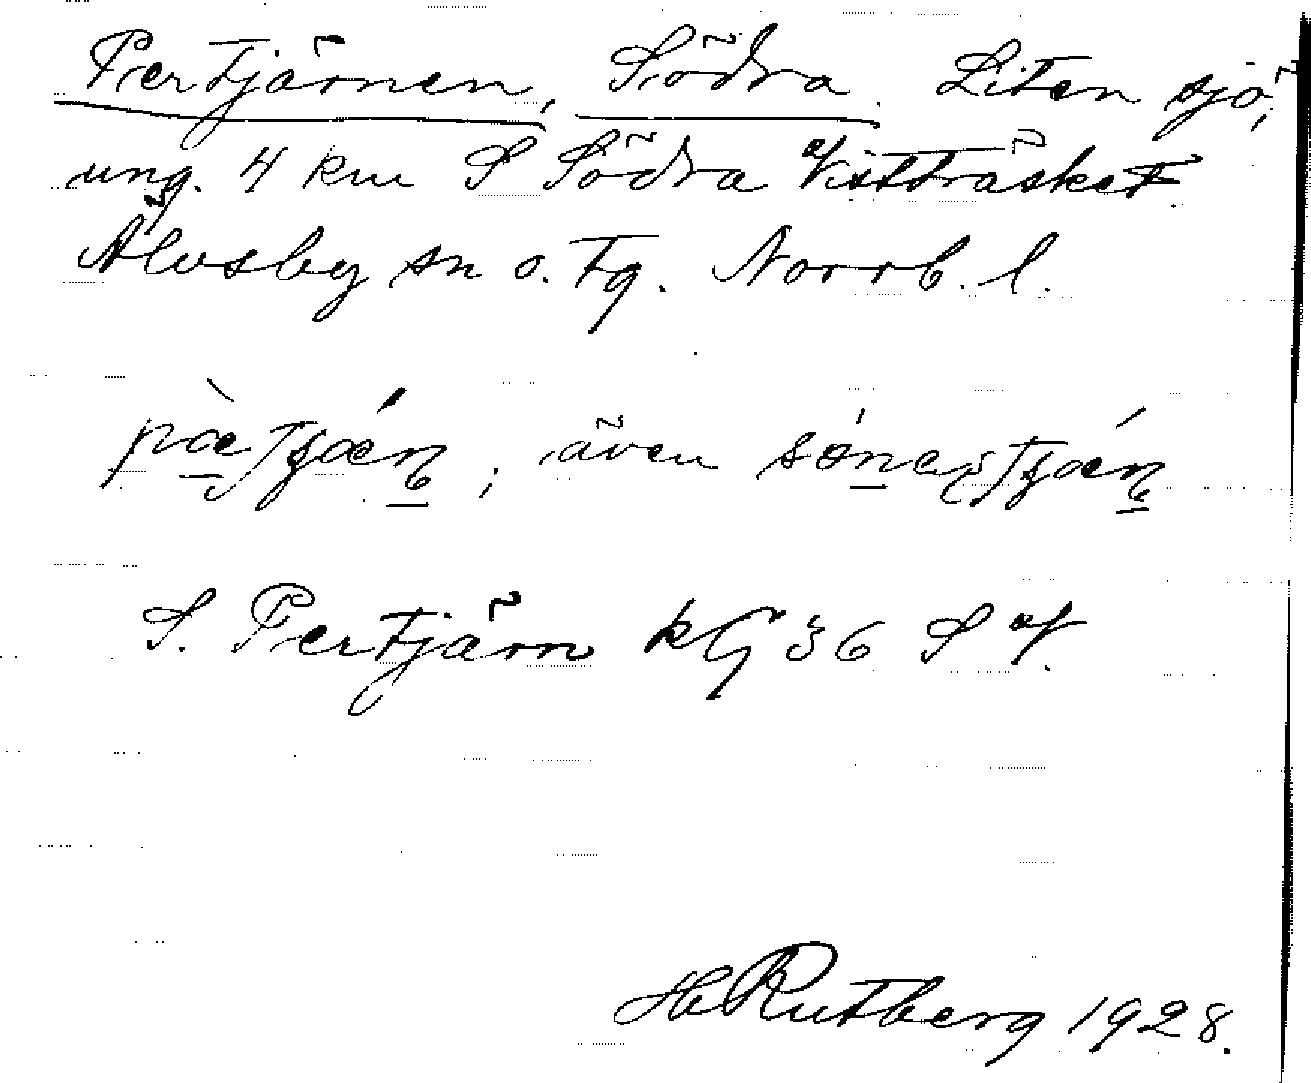 Pertjärnen, Södra. Liten sjö,
ung. 4 km S Södra Vistträsket.
Älvsby sn o. tg. Norrb. l.
även
S. Pertjärn kG 36 S V.
H Rutberg 1928.